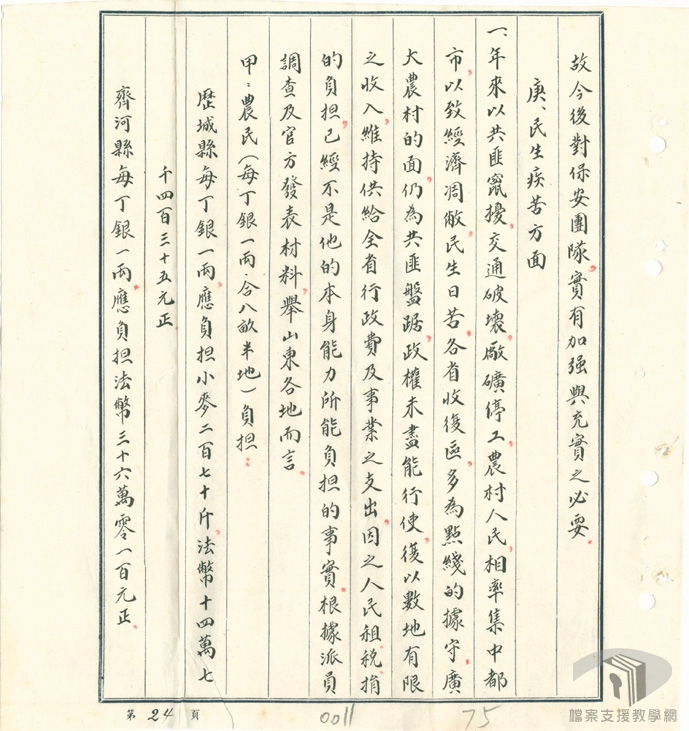 故今後對保安團隊，實有加強與充實之必要。
庚、民生疾苦方面
一、年來以共匪竄擾，交通破壞，廠礦停工，農村人民，相率集中都
市，以致經濟凋敝，民生日苦，各省收復區，多為點綫的據守，廣
大農村的面，仍為共匪盤踞，政權未盡能行使，復以數地有限
之收入，維持供給全省行政費及事業之支出，因之人民租稅捐
的負担，已經不是他的本身能力所能負担的事實，根據派員
調查及官方發表材料，舉山東各地而言。
甲：農民（每丁銀一兩，合八畝半地）負担：
歷城縣每丁銀一兩，應負担小麥二百七十斤，法幣十四萬七
千四百三十五元正
齊河縣每丁銀一兩，應負担法幣三十六萬零一百元正。
第 24 頁
0011
75
檔案支援教學網